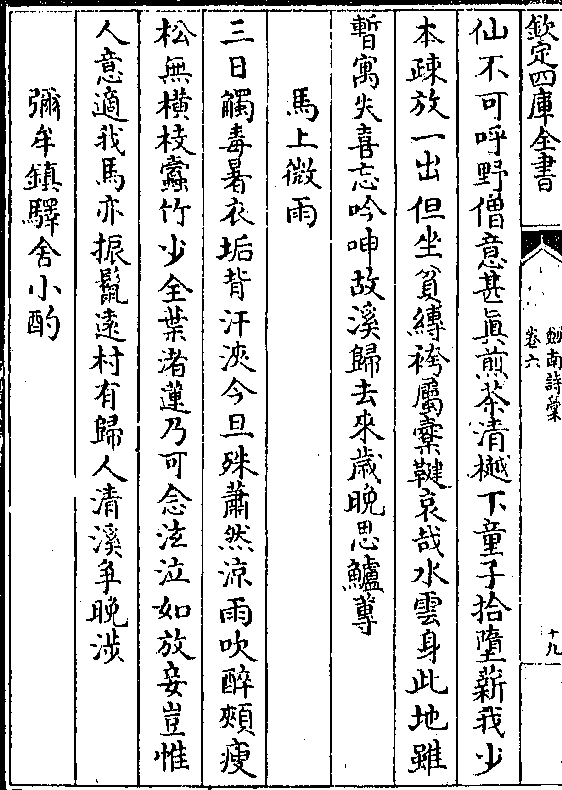 欽定四庫全書
劔南詩藁
卷六
十九
仙不可呼野僧意甚眞煎茶清樾下童子拾墮薪我少
本疎放一出但坐貧縛袴屬櫜鞬哀哉水雲身此地雖
暫寓失喜忘吟呻故溪歸去來歲晩思鱸蓴
馬上微雨
三日觸毒暑衣垢背汗浹今旦殊蕭然涼雨吹醉頰瘦
松無横枝蠹竹少全葉渚蓮乃可念泫泣如放妾豈惟
人意適我馬亦振鬛遠村有歸人清溪爭晩涉
彌牟鎮驛舍小酌